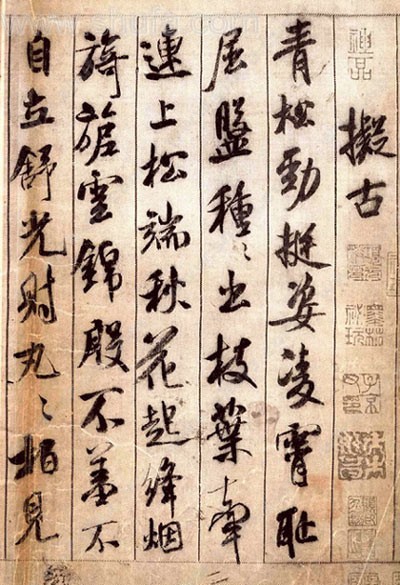 神品
擬古
青松勁挺姿凌霄耻
屈盤種〻出枝葉牽
連上松端秋花起絳烟
旖旎雲錦殷不羞不
自立舒光射丸〻柏見